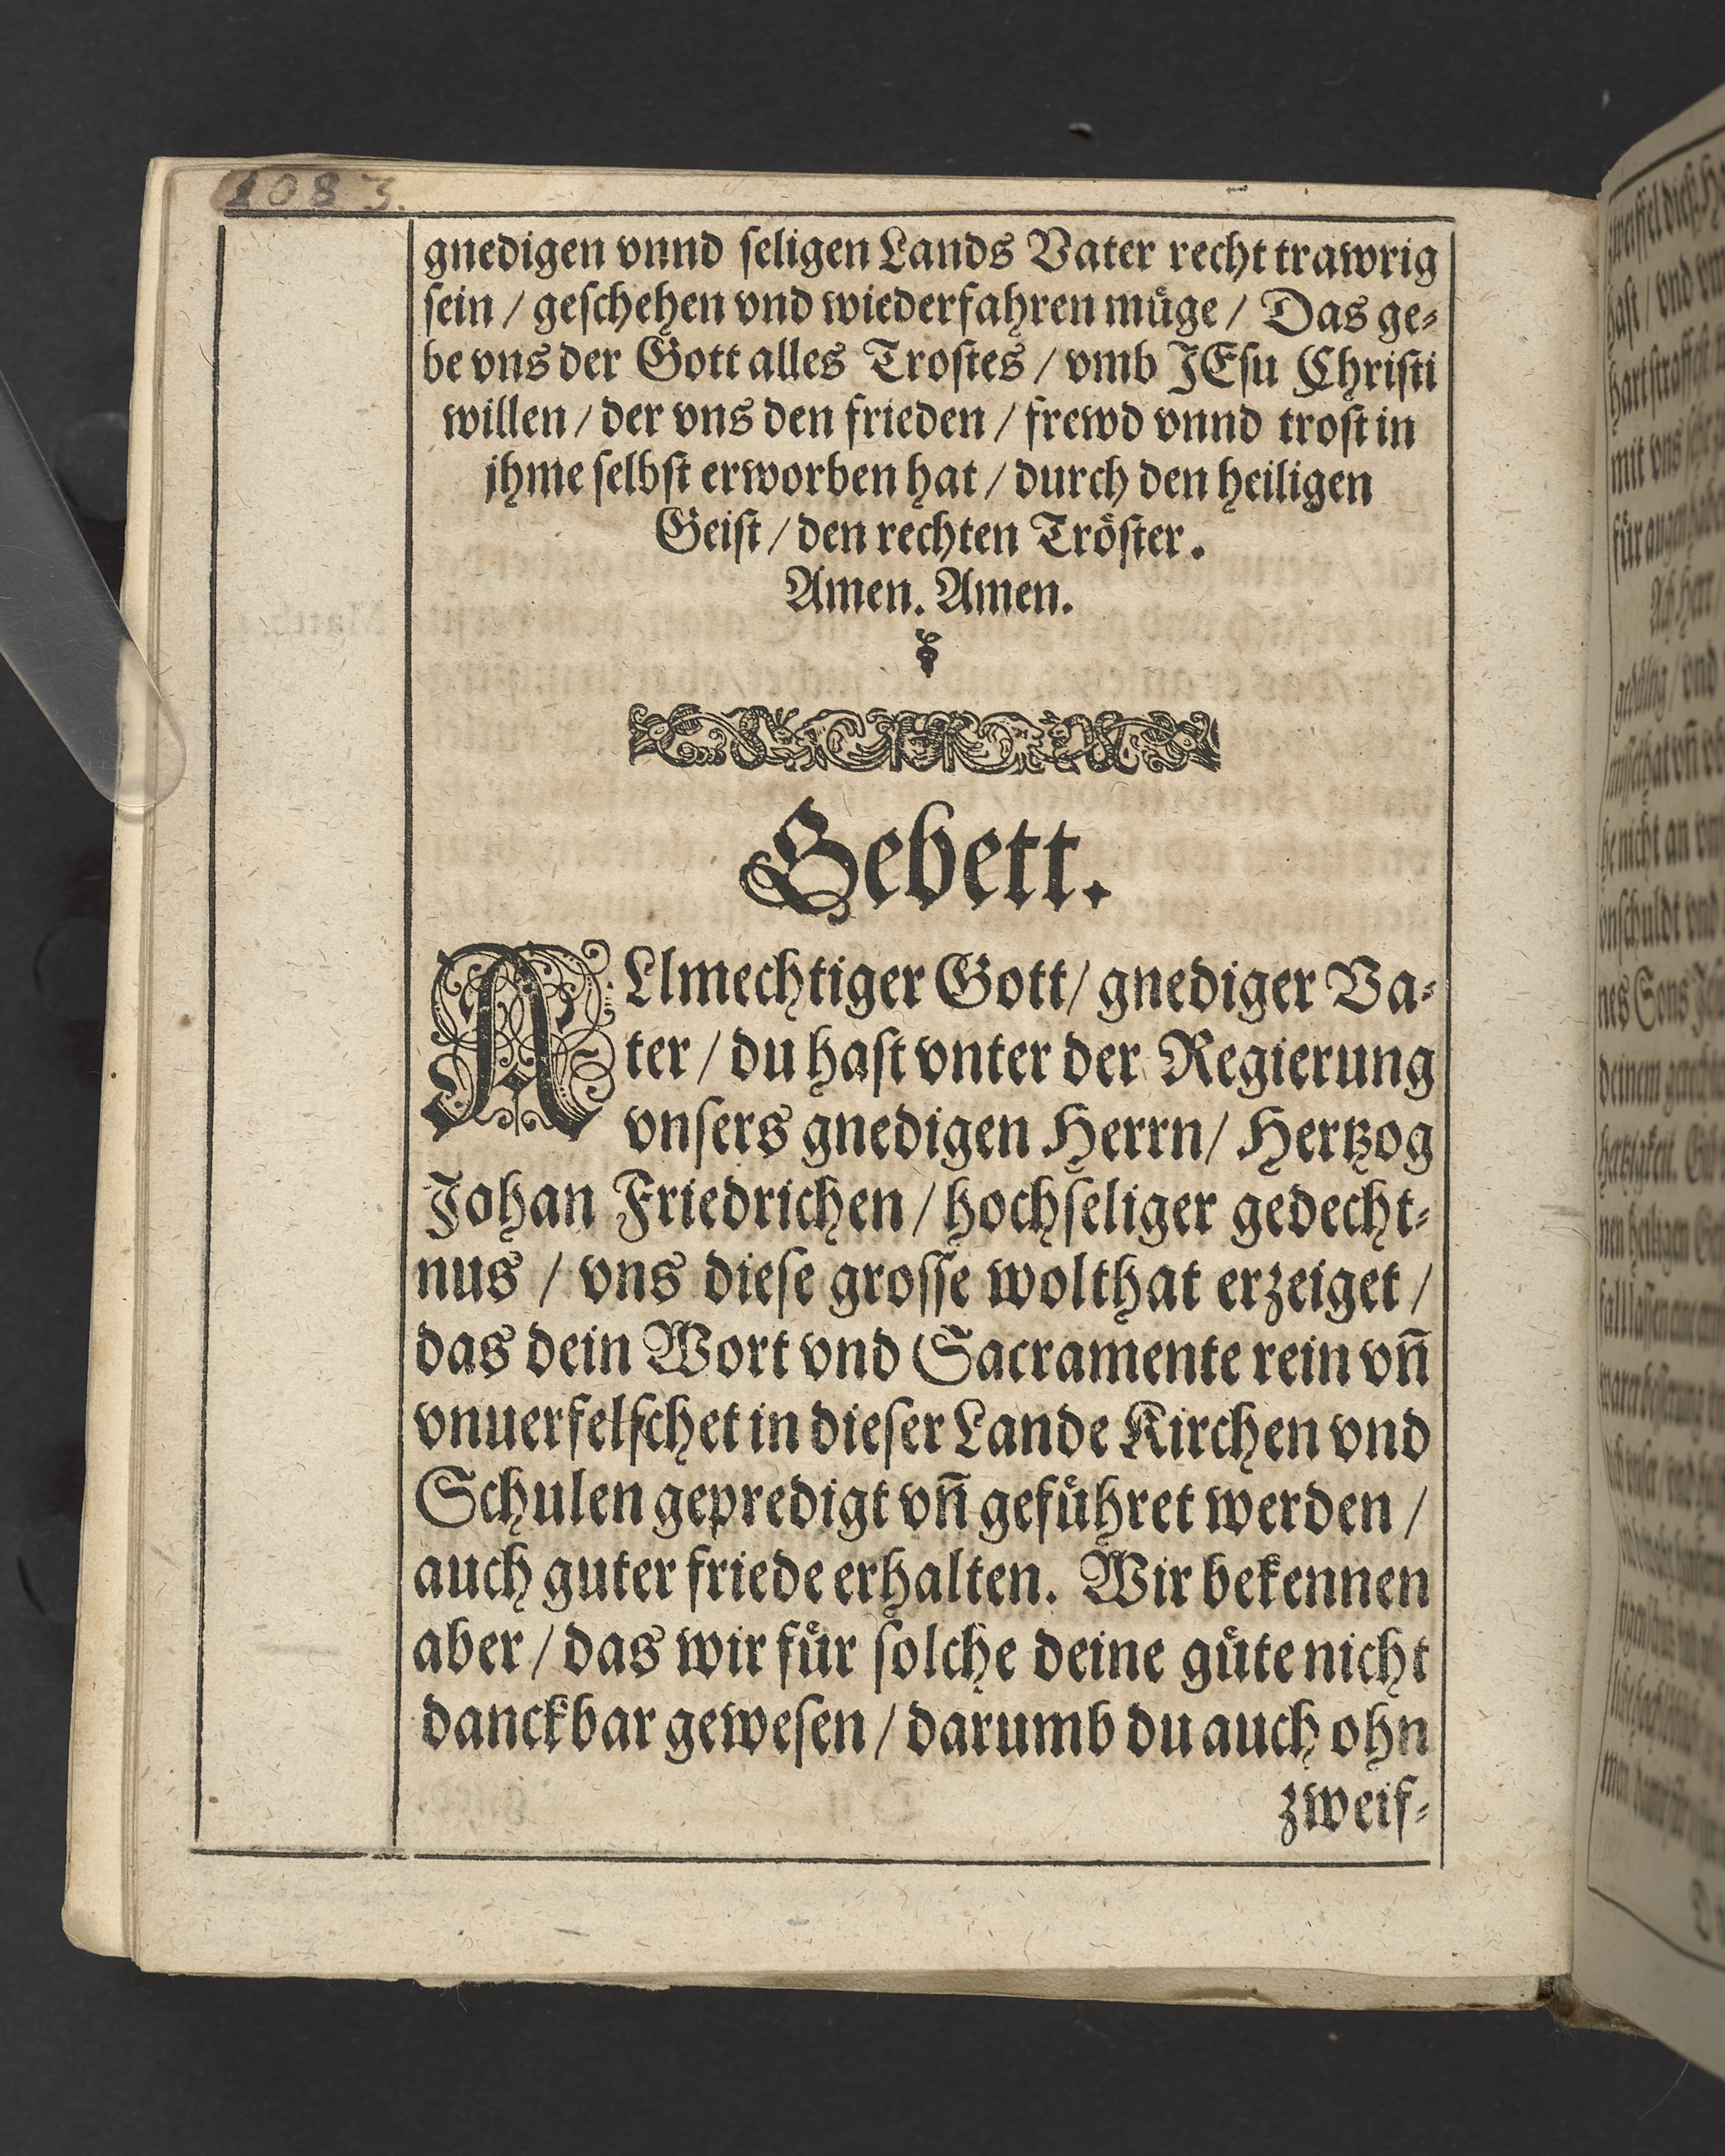 1083.
gnedigen vnnd ſeligen Lands Vater recht trawrig
ſein / geſchehen vnd wiederfahren muͤge / Das ge⸗
be vns der Gott alles Troſtes / vmb JEſu Chriſti
willen / der vns den frieden / frewd vnnd troſt in
jhme ſelbſt erworben hat / durch den heiligen
Geiſt / den rechten Troͤſter.
Amen. Amen.
Gebett.
ALlmechtiger Gott / gnediger Va⸗
ter / du haſt vnter der Regierung
vnſers gnedigen Herrn / Hertzog
Johan Friedrichen / hochſeliger gedecht⸗
nus / vns dieſe groſſe wolthat erzeiget /
das dein Wort vnd Sacramente rein vñ
vnuerfelſchet in dieſer Lande Kirchen vnd
Schulen gepredigt vñ gefuͤhret werden /
auch guter friede erhalten. Wir bekennen
aber / das wir fuͤr ſolche deine guͤte nicht
danckbar geweſen / darumb du auch ohn
zweif⸗
hart
mit vns
fuͤr augen
Ach Herr
he nicht an
vnſchuldt vnd
nes Sons
deinem